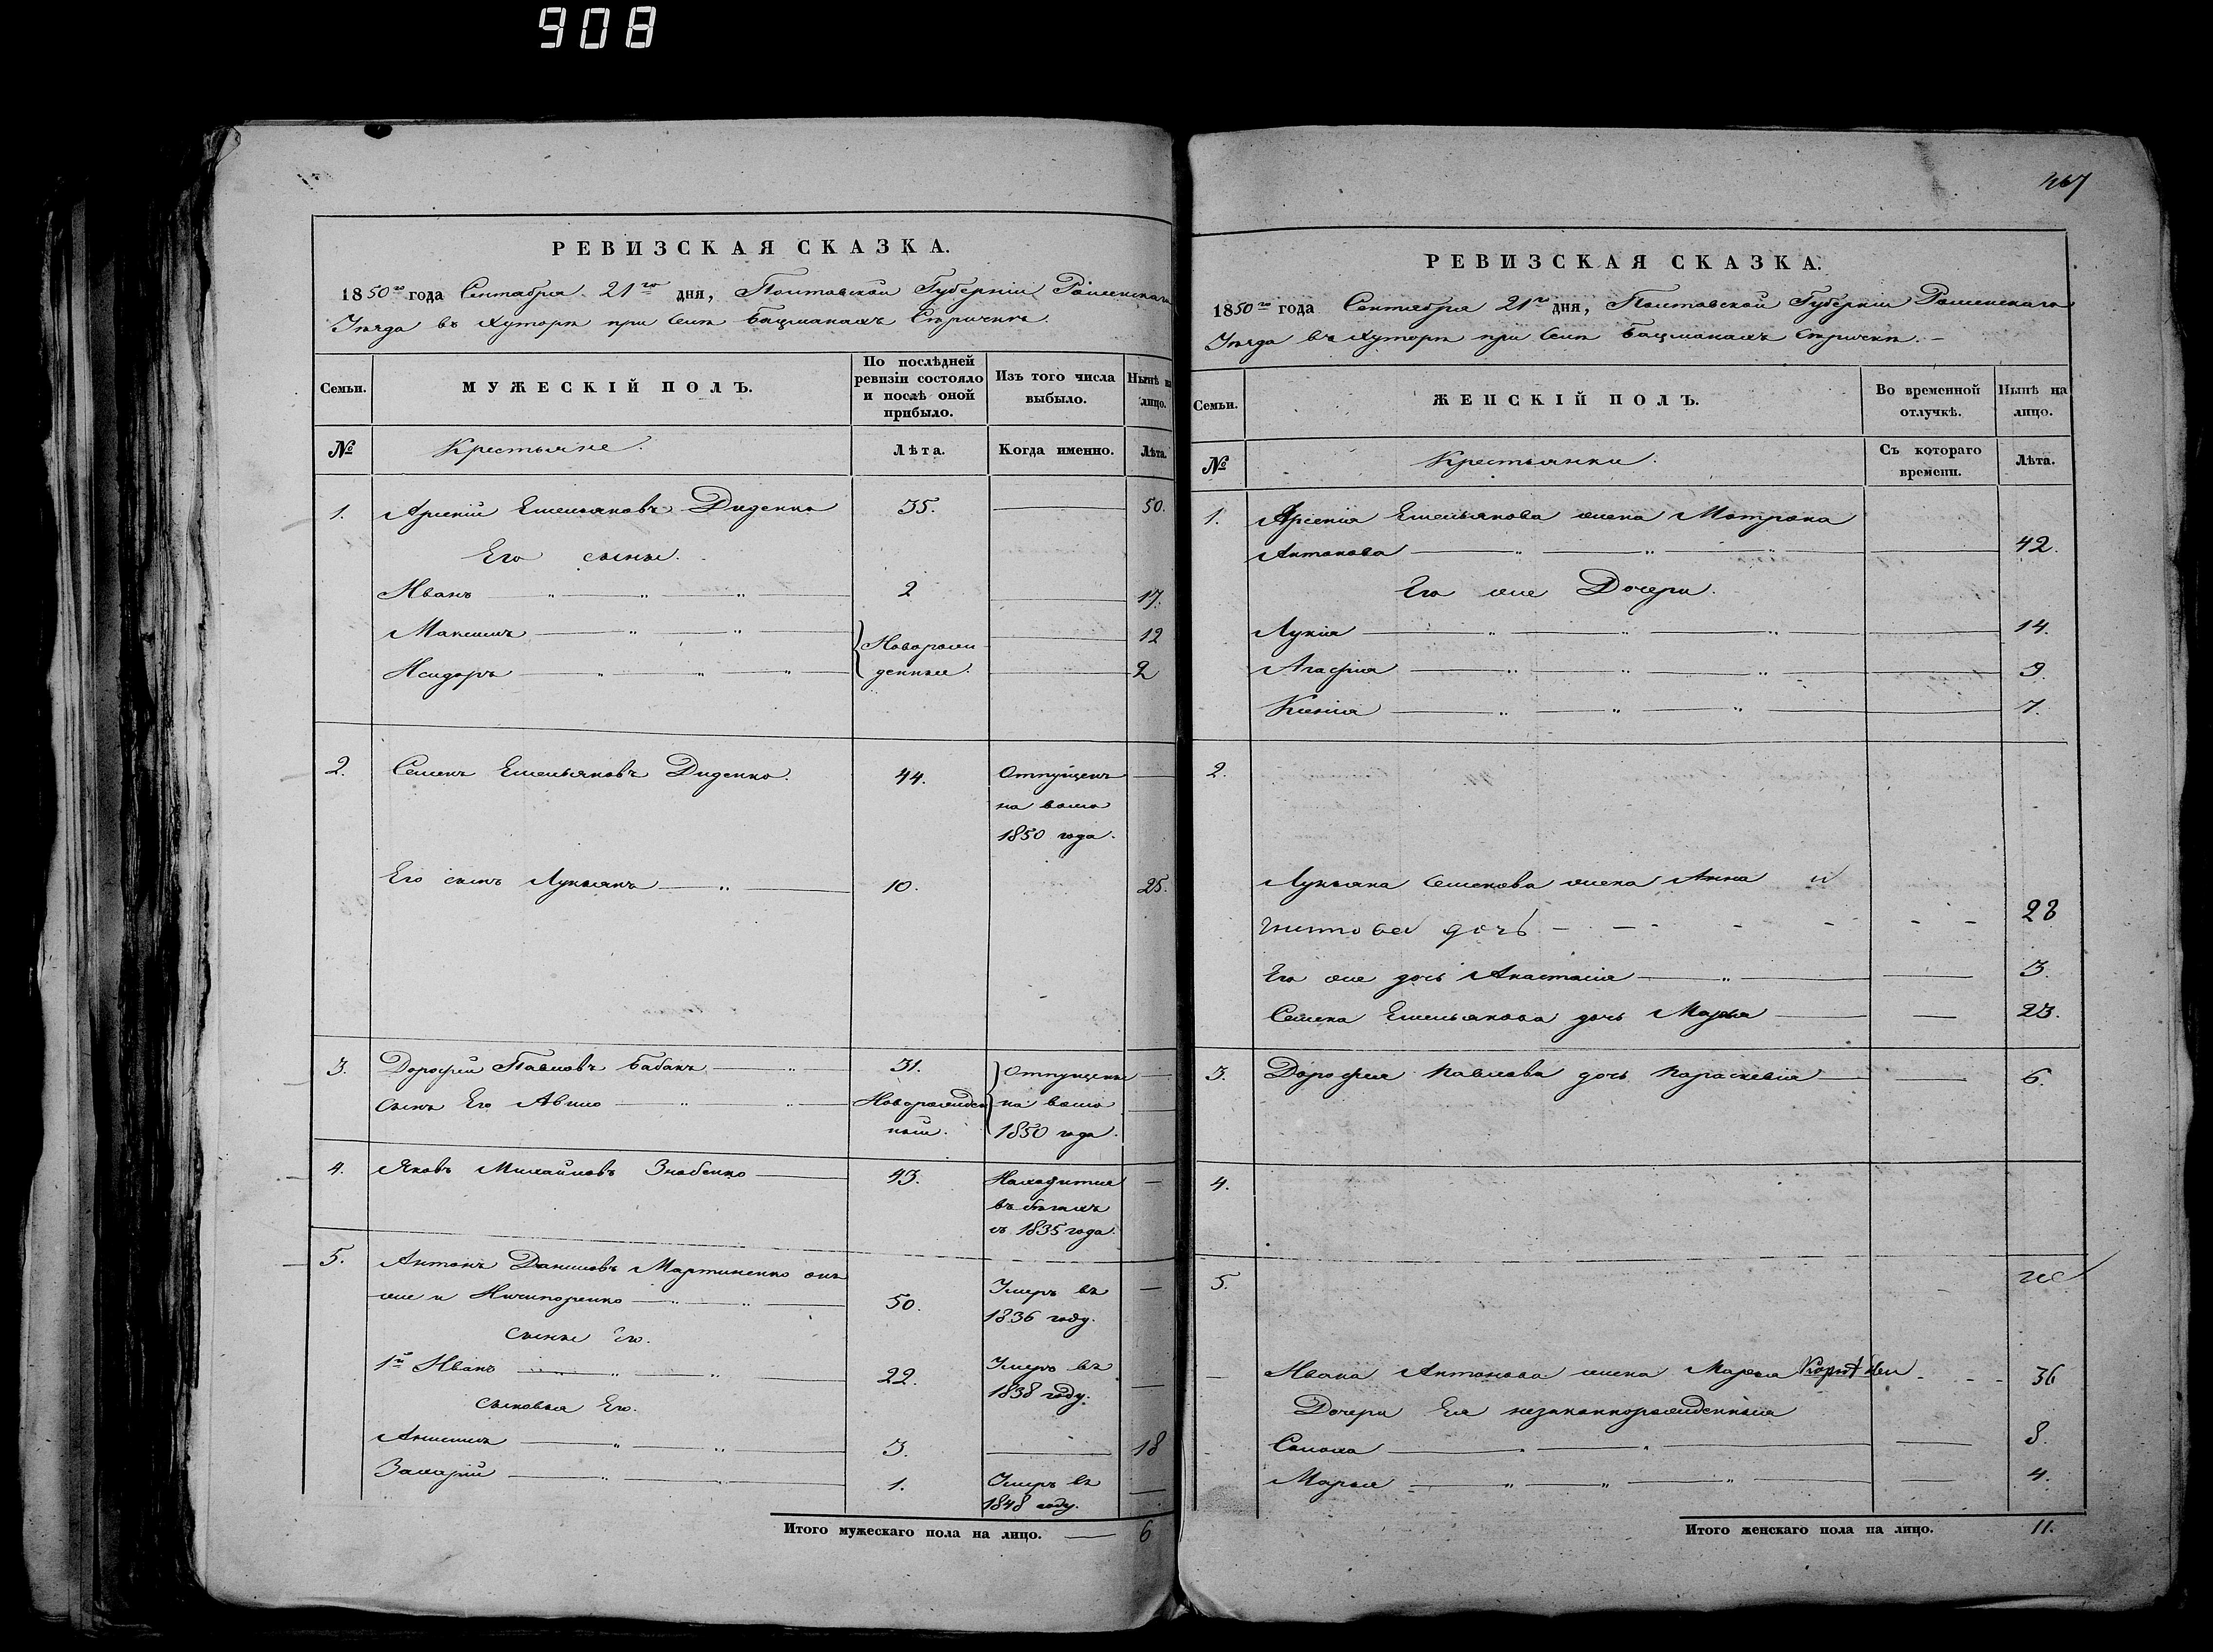 908
РЕВИЗСКАЯ СКАЗКА.
1850го года Сентября 21го дня, Полтавской Губерніи Роменскаго
Уѣзда въ Хуторѣ при селѣ Бацманахъ
Семьи.
МУЖЕСКІЙ ПОЛЪ.
По послѣдней ревизіи состояло и послѣ оной прибыло.
Изъ того числа выбыло.
Нынѣ на лицо.
№
Крестьяне.
Лѣта.
Когда именно.
Лѣта.
1. Арсеній Емельяновъ Диденко 35. 50.
Его сыны.
Иванъ 2 17.
Максимъ Новорож- 12
Исидоръ денные. 2
2. Семенъ Емельяновъ Диденко. 44. Отпущенъ
на волю
1850 года.
Его сынъ Лукьянъ 10. 25.
3. Дорофей Павловъ Бабакъ 31. Отпущены
сынъ Его Новорожден на волю
ный. 1850 года.
4. Яковъ Михайловъ 43. Находится
въ бѣгахъ
съ 1835 года.
5. Антонъ Даниловъ Мартиненко онъ
же и Ничипоренко 50. Умеръ въ
1836 году.
сыны Его.
1й Иванъ 22. Умеръ въ
1838 году.
сыновья Его.
Анисимъ 3. 18
Захарій 1. Умеръ въ
1848 году.
Итого мужескаго пола на лицо. 6
467
РЕВИЗСКАЯ СКАЗКА.
1850го года Сентября 21го дня, Полтавской Губерніи Роменскаго
Уѣзда въ Хуторѣ при селѣ Бацманахъ
Семьи.
ЖЕНСКІЙ ПОЛЪ.
Во временной отлучкѣ.
Нынѣ на лицо.
№
Крестьянки.
Съ котораго времени.
Лѣта.
1. Арсенія Емельянова жена Матрона
Антонова 42.
Его же Дочери.
Лукія 14.
Агафія 9.
Ксенія 7.
2.
Лукьяна Семенова жена Анна
дочь 28
Его же дочь Анастасія 3.
Семена Емельянова дочь Марья 23.
3. Дорофея Павлова дочь Параскевія 6.
4.
5.
Ивана Антонова жена Марья 36
Дочери Ея незаконнорожденныя
8.
Марья 4.
Итого женскаго пола на лицо. 11.